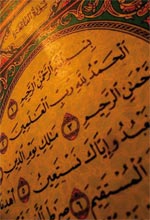 بِسْمِ ٱللَّهِ ٱلرَّحْمَٰنِ ٱلرَّحِيمِ ١
ٱلْحَمْدُ لِلَّهِ رَبِّ ٱلْعَٰلَمِينَ
حْمَٰنِ ٱلرَّحِيمِ ٣ مَٰلِكِ يَوْمِ ٱلدِّينِ
بُدُ وَإِيَّاكَ نَسْتَعِينُ ٥ ٱهْدِنَا
ٱلْمُسْتَقِيمَ ٦ صِرَٰطَ